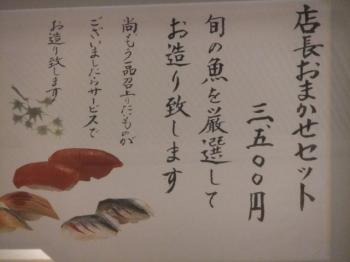 店長おまかせセット
三、五〇〇円
旬の魚を厳選して
お造り致します
尚もう一品召上りたいものが
ございましたらサービスで
お造り致します